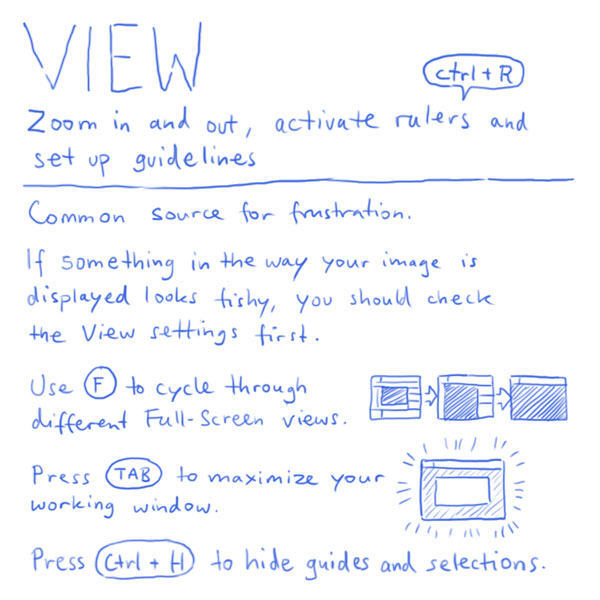 VIEW
ctrl + R
Zoom in and out, activate rulers and
set up guidelines
Common source for frustration.
If something in the way your image is
displayed looks fishy, you should check
the View settings first.
Use F to cycle through
different Full-Screen views.
Press TAB to maximize your
working window.
Press Ctrl + H to hide guides and selections.